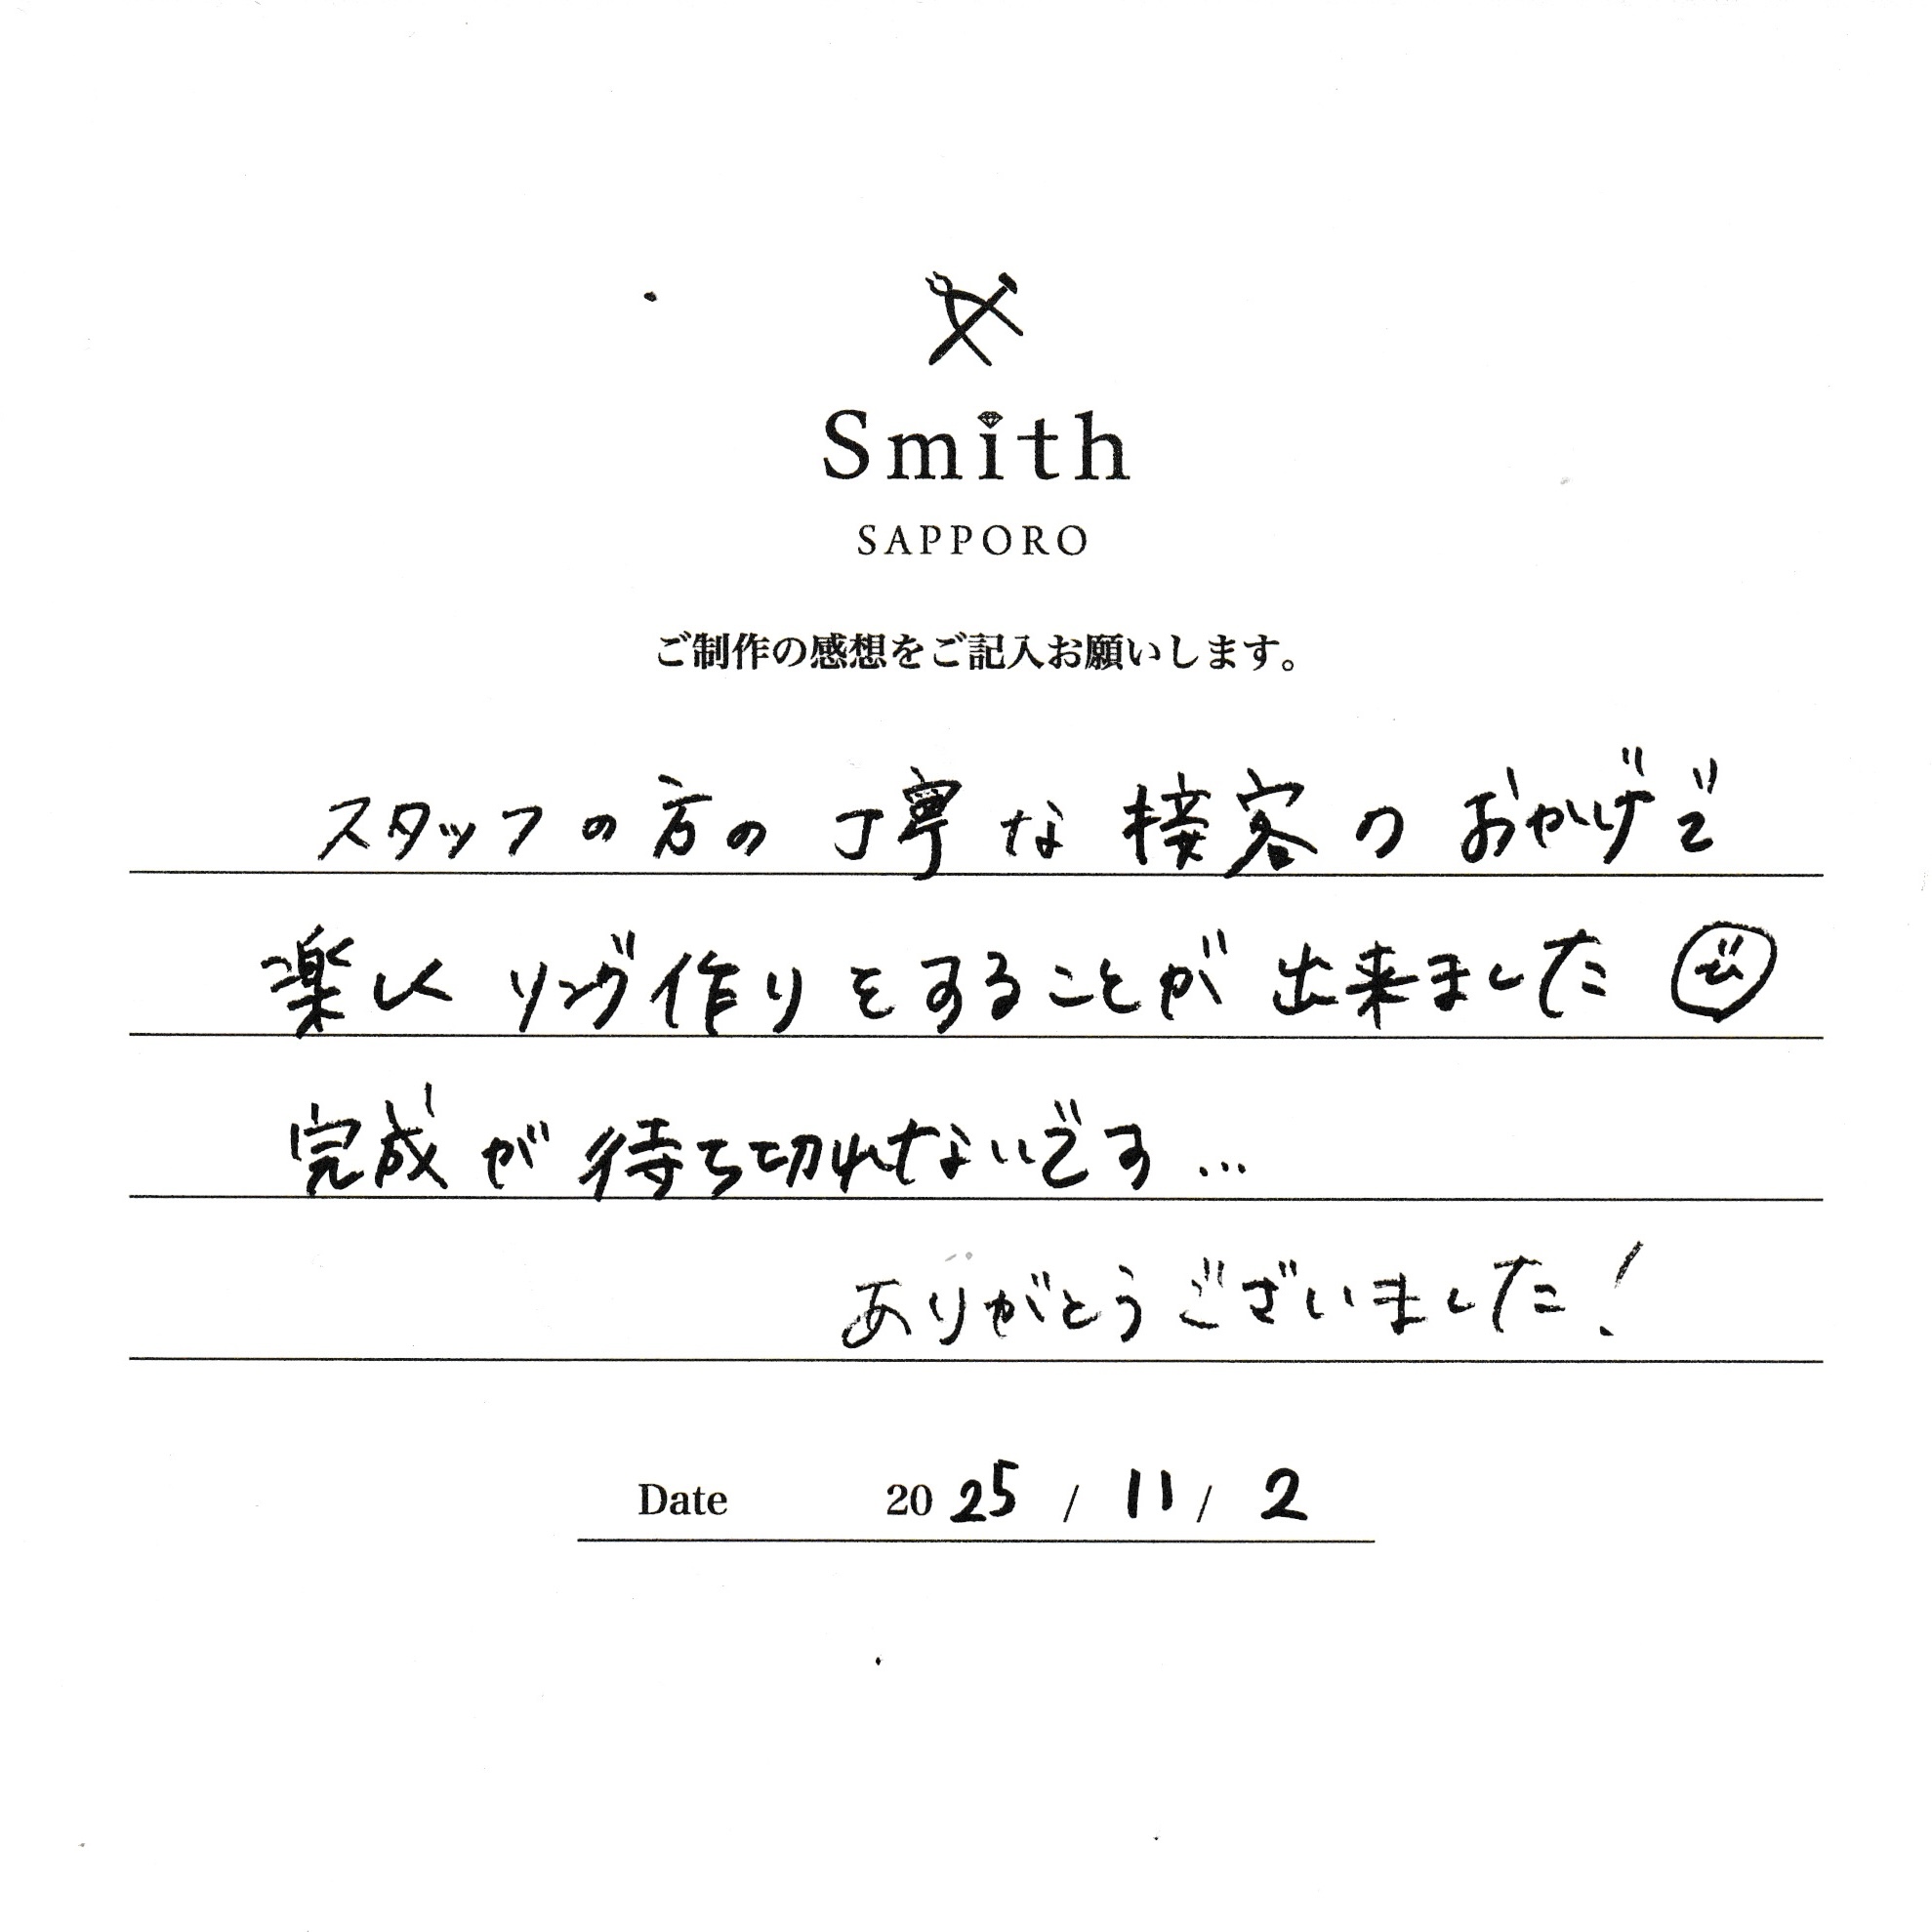 Smith
SAPPORO
ご制作の感想をご記入お願いします。
スタッフの方の丁寧な接客のおかげで
楽しくリング作りをすることが出来ました
完成が待ち切れないです…
ありがとうございました!
Date 2025 / 11 / 2